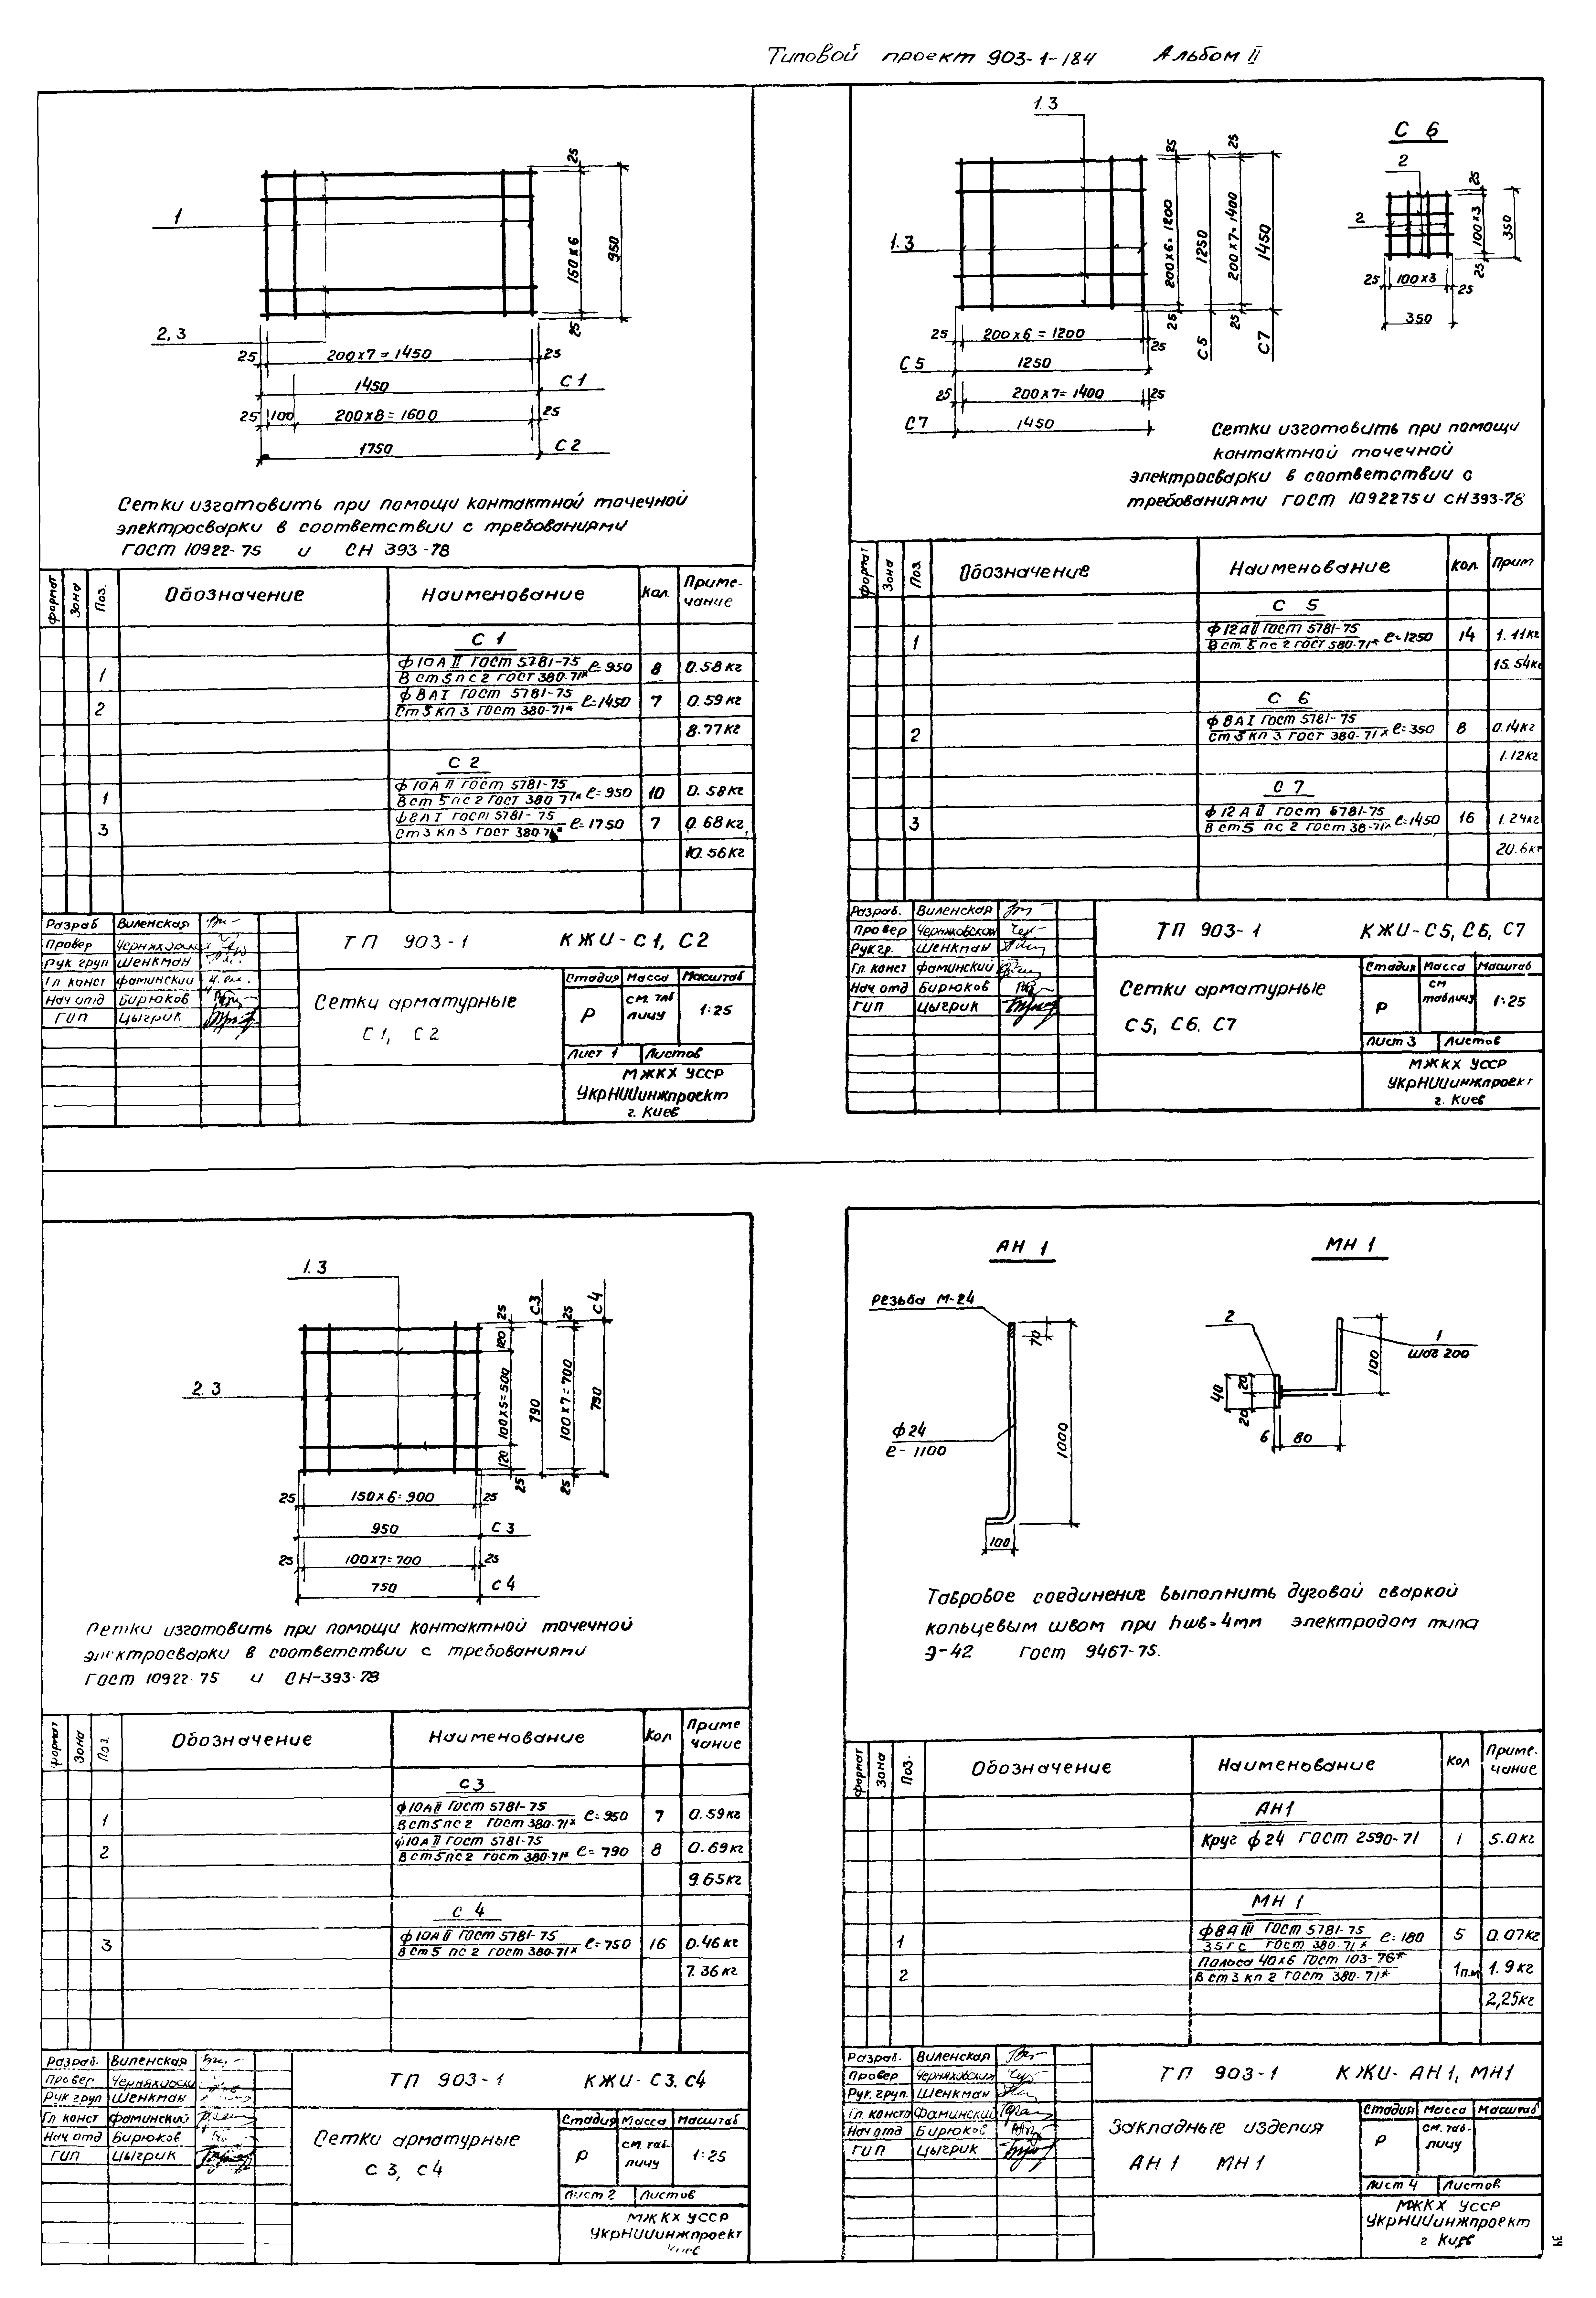 Типовой проект 903-1-184 Альбом II
1
2,3
25
150x6
950
25
25
200x7=1450
25
1450
С1
25
100
200x8=1600
25
1750
С2
Сетки изготовить при помощи контактной точечной
электросварки в соответствии с требованиями
ГОСТ 10922-75 и СН 393-78
Формат Зона Поз. Обозначение Наименование Кол. Приме-
чание
С 1
1 ф10АII ГОСТ 5781-75
В ст5пс2 ГОСТ 380-71* ℓ=950 8 0.58кг
2 ф8АI ГОСТ 5781-75
Ст3 кп 3 ГОСТ 380-71* ℓ=1450 7 0.59кг
8.77кг
С 2
1 ф10А II ГОСТ 5781-75
Вст 5пс2 ГОСТ 380-71* ℓ=950 10 0.58кг
3 ф8АI ГОСТ 5781-75
Ст3 кп3 ГОСТ 380-71* ℓ=1750 7 0.68кг
10.56кг
Разраб Виленская
Провер Черняховская
Рук груп Шенкман
Гл. конст Фаминский
Нач отд Бирюков
ГИП Цыгрик
ТП 903-1 КЖИ-С1, С2
Сетки арматурные
С1, С2
Стадия Масса Масштаб
Р см. таб
лицу 1:25
Лист 1 Листов
МЖКХ УССР
УкрНИИинжпроект
г. Киев
1.3
1.3
25
200x6=1200
25
1250
С5
25
200x7=1400
25
1450
С7
25
200x6=1200
25
С5
1250
25
200x7=1400
25
С7
1450
С 6
2
2
25
100x3
25
350
25
100x3
25
350
Сетки изготовить при помощи
контактной точечной
электросварки в соответствии с
требованиями ГОСТ 1092275и СН393-78
Формат Зона Поз. Обозначение Наименование Кол. Прим
С 5
1 ф12АII ГОСТ 5781-75
Вст 5 пс 2 ГОСТ 380-71* ℓ=1250 14 1.11кг
15.54кг
С 6
2 ф8АI ГОСТ 5781-75
Ст3 кп 3 ГОСТ 380-71* ℓ=350 8 0.14кг
1.12кг
С 7
3 ф12А II ГОСТ 5781-75
В ст5 пс 2 ГОСТ 38-71* ℓ=1450 16 1.24кг
20.6кг
Разраб. Виленская
Провер Черняховская
Рук гр. Шенкман
Гл. конст Фаминский
Нач отд Бирюков
ГИП Цыгрик
ТП 903-1 КЖИ-С5, С6, С7
Сетки арматурные
С5, С6, С7
Стадия Масса Масштаб
Р см
таблицу 1:25
Лист 3 Листов
МЖКХ УССР
УкрНИИинжпроект
г. Киев
1.3
2.3
25
120
100x5=500
120
25
С3
790
25
100x7=700
25
С4
790
25
150x6=900
25
950
С3
25
100x7=700
25
750
С4
Сетки изготовить при помощи контактной точечной
электросварки в соответствии с требованиями
ГОСТ 10922-75 и СН-393-78
Формат Зона Поз. Обозначение Наименование Кол Приме
чание
С 3
1 ф10АII ГОСТ 5781-75
Вст5пс2 ГОСТ 380-71* ℓ=950 7 0.59кг
2 ф10А II ГОСТ 5781-75
Вст5пс2 ГОСТ 380-71* ℓ=790 8 0.69кг
9.65кг
С 4
3 ф10АII ГОСТ 5781-75
Вст5 пс2 ГОСТ 380-71* ℓ=750 16 0.46кг
7.36кг
Разраб. Виленская
Провер Черняховская
Рук груп Шенкман
Гл конст Фаминский
Нач отд Бирюков
ГИП Цыгрик
ТП 903-1 КЖИ-С3, С4
Сетки арматурные
С 3, С4
Стадия Масса Масштаб
Р см. таб-
лицу 1:25
Лист 2 Листов
МЖКХ УССР
УкрНИИинжпроект
АН 1
Резьба М-24
70
ф24
ℓ-1100
1000
100
МН 1
2
1
шаг 200
100
40
20
20
6
80
Тавровое соединение выполнить дуговой сваркой
кольцевым швом при hшв=4мм электродом типа
Э-42 ГОСТ 9467-75.
Формат Зона Поз. Обозначение Наименование Кол Приме-
чание
АН1
Круг ф24 ГОСТ 2590-71 1 5.0кг
МН 1
1 ф8АIII ГОСТ 5781-75
35ГС ГОСТ 380-71* ℓ=180 5 0.07кг
2 Полоса 40x6 ГОСТ 103-76*
Вст3 кп2 ГОСТ 380-71* 1п.м 1.9кг
2,25кг
Разраб. Виленская
Провер Черняховская
Рук. груп. Шенкман
Гл. констр Фаминский
Нач отд Бирюков
ГИП Цыгрик
ТП 903-1 КЖИ-АН1, МН1
Закладные изделия
АН 1 МН 1
Стадия Масса Масштаб
Р см. таб-
лицу
Лист 4 Листов
МЖКХ УССР
УкрНИИинжпроект
г Киев